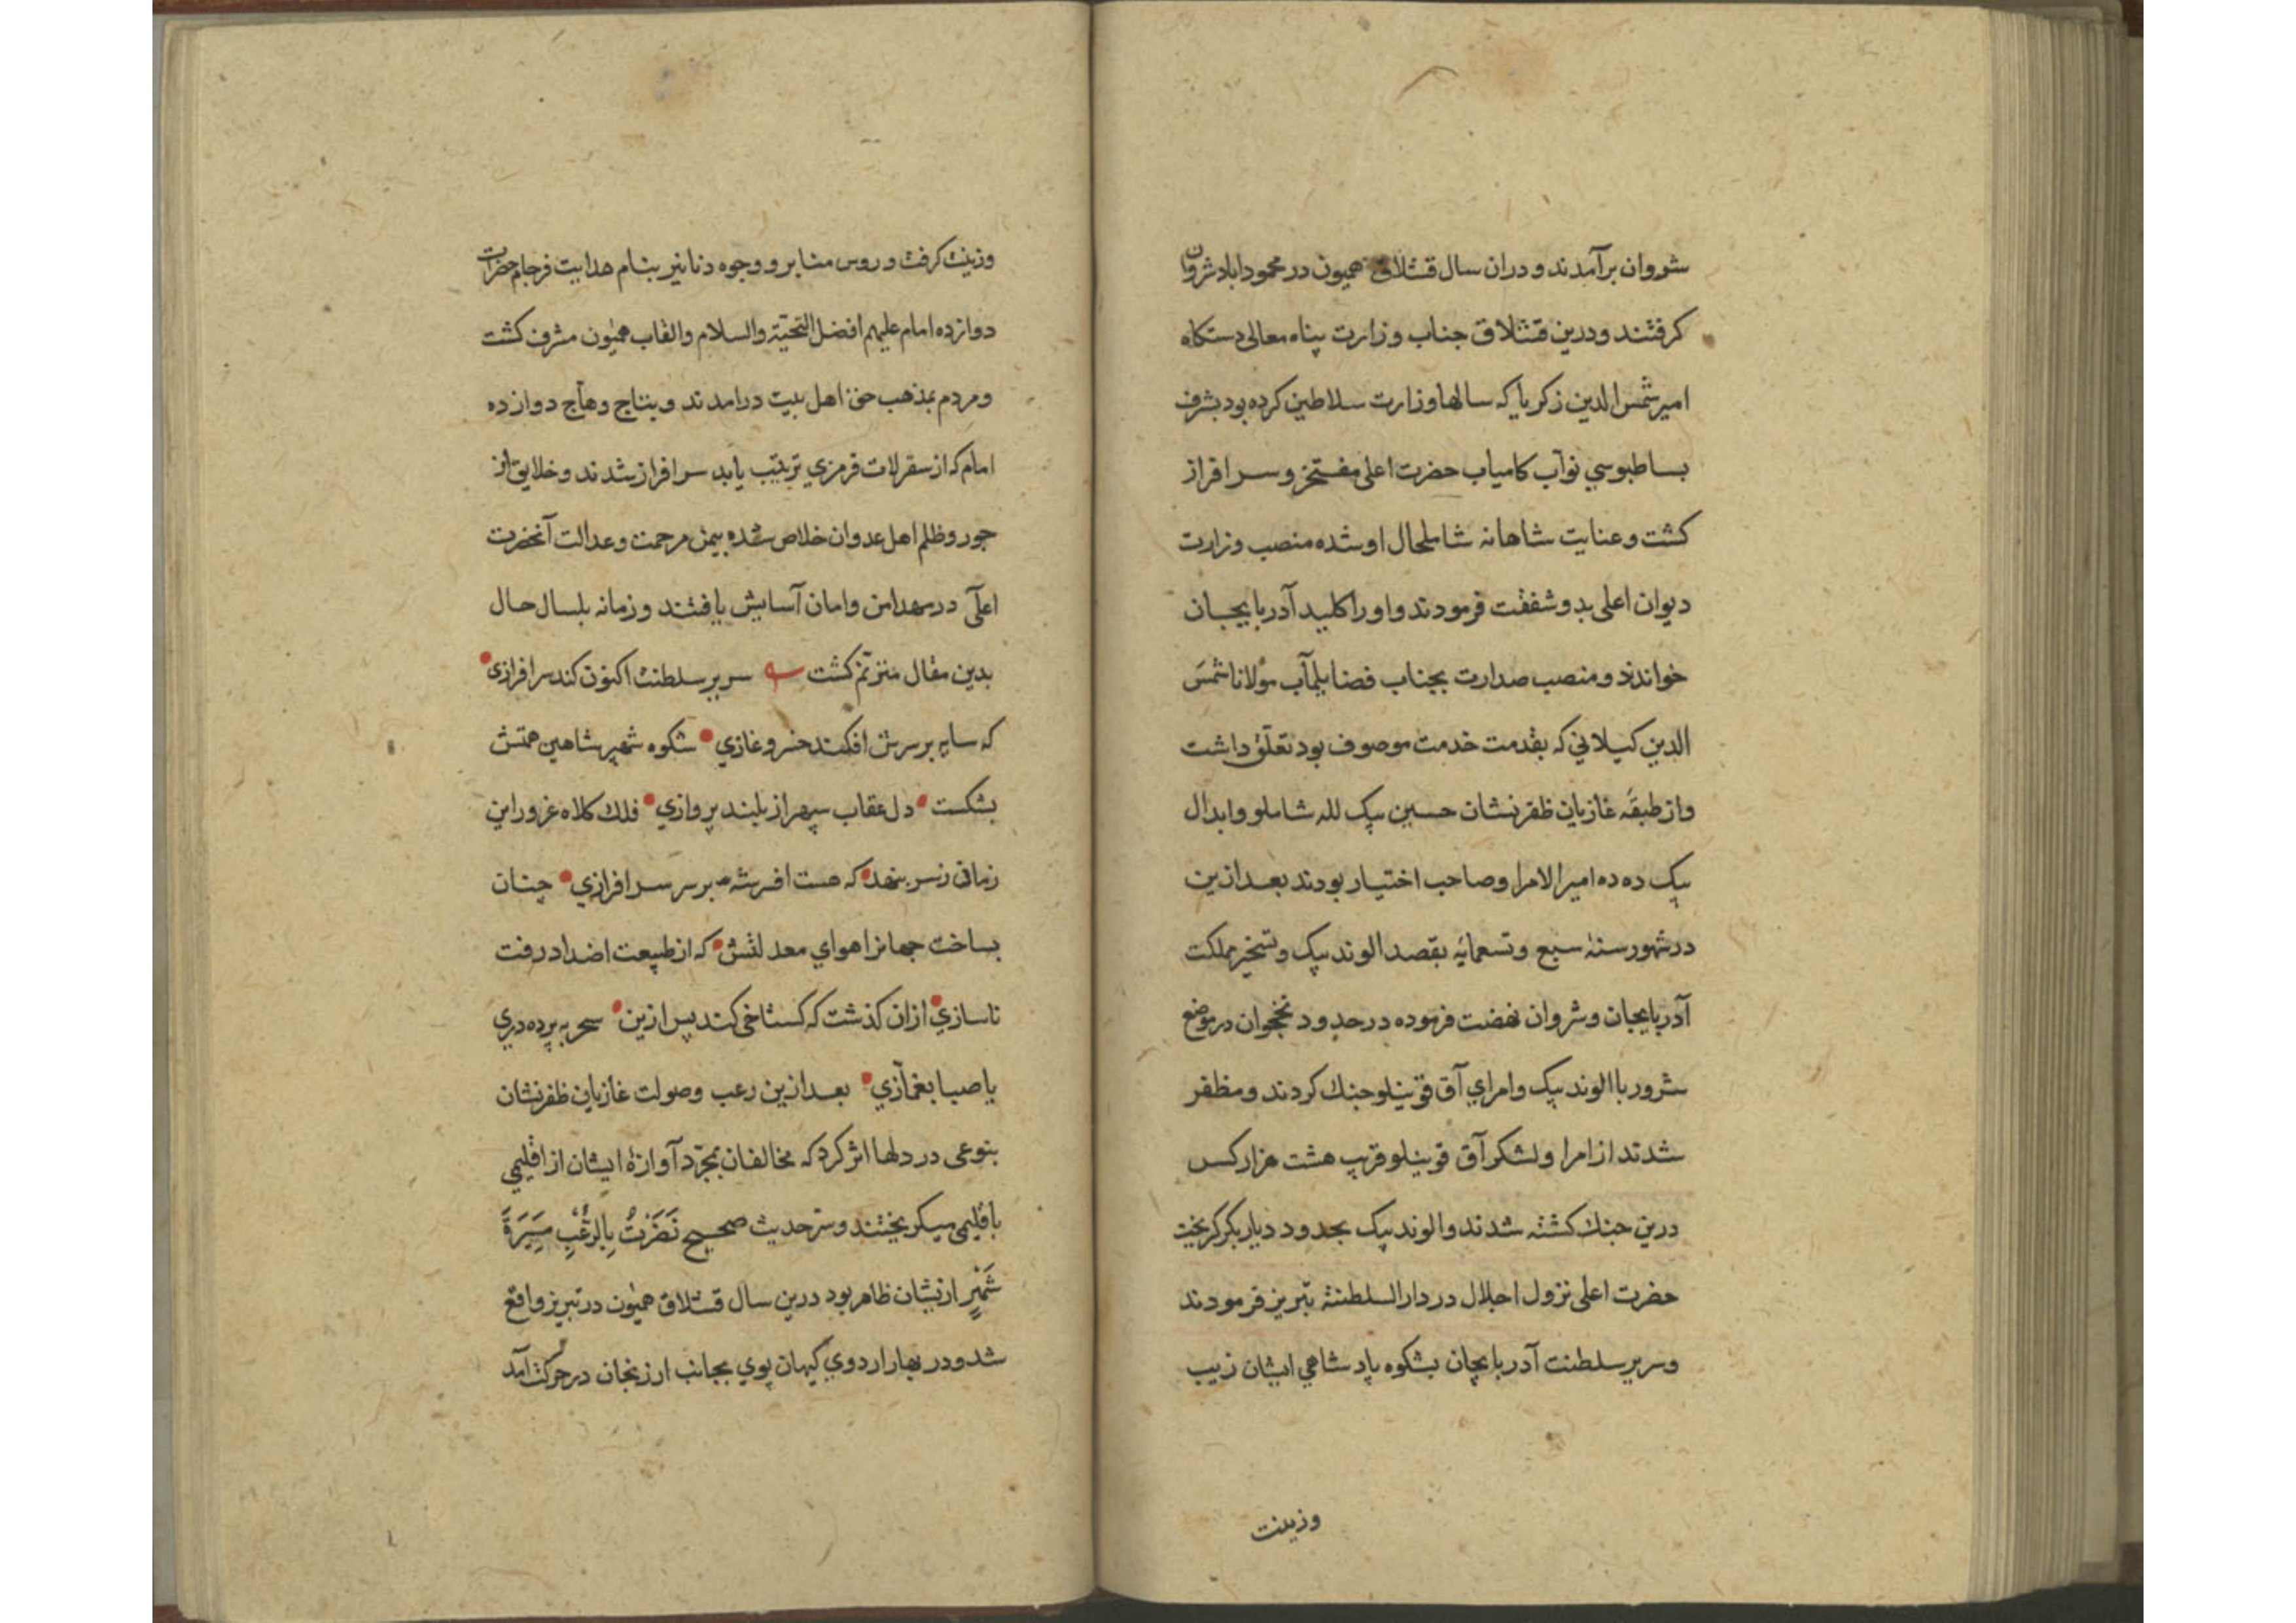 شروان برآمدند و دران سال قشلاق همیون در محموداباد شروان
کرفتند و درین قشلاق جناب وزارت پناه معالی دستکاه
امیر شمس الدین زکریا که سالها وزارت سلاطین کرده بود بشرف
بساطبوسي نوآب کامیاب حضرت اعلی مفتخر و سرافراز
کشت و عنایت شاهانه شاملحال او شده منصب وزارت
دیوان اعلی بدو شفقت فرمودند و او را کلید آدربایجان
خواندند و منصب صدارت بجناب فضایلمآب مولانا شمس
الدین کیلانی که بقدمت خدمت موصوف بود تعلّق داشت
و از طبقه غازیان ظفرنشان حسین بیک لله شاملو و ابدال
بیک ده ده امیرالامرا و صاحب اختیار بودند بعد ازین
در شهور سنه سبع و تسعمایه بقصد الوند بیک و تسخیر مملکت
آدربایجان و شروان نهضت فرموده در حدود نخجوان در موضع
شرور با الوند بیک و امراي آق قوینلو جنك کردند و مظفر
شدند از امرا و لشکر آق قوینلو قریب هشت هزار کس
درین جنك کشته شدند و الوند بیک بحدود دیاربکر کریخت
حضرت اعلی نزول اجلال در دارالسلطنة تبریز فرمودند
و سریر سلطنت آدربایجان بشکوه پادشاهي ایشان زیب
وزینت
وزینت کرفت و روس منابر و وجوه دنانیر بنام هدایت فرجام حضرات
دوازده امام علیهم افضل التحیّة والسلام والقاب همیون مشرف کشت
و مردم بمذهب حق اهل بیت درامدند و بتاج وهاج دوازده
امام که از سقرلات قرمزي ترتیب یابد سرافراز شدند و خلایق از
جور و ظلم اهل عدوان خلاص شده بیمن مرحمت و عدالت آنحضرت
اعلی در مهد امن و امان آسایش یافتند و زمانه بلسال حال
بدین مقال مترنّم کشت سریر سلطنت اکنون کند سرافرازی
که سایه بر سرش افکند خسرو غازي شکوه شهپر شاهین همتش
بشکست دل عقاب سپهر از بلند پروازي فلك کلاه غرور این
زمان ز سر بنهد که هست افسر شه بر سر سرافرازي چنان
بساخت جهانرا هواي معدلتش که از طبیعت اضداد رفت
ناسازي ازان کذشت که کستاخی کند پس ازین سحر به پرده دري
یا صبا بغمّازي بعد ازین رعب و صولت غازیان ظفرنشان
بنوعی در دلها اثر کرد که مخالفان بمجرّد آوازهٔ ایشان از اقلیمي
باقلیمی میکریختند و سرّ حدیث صحیح نَصَرْتُ بِالرُّعْبِ مَسِیرَةَ
شَهْرٍ ازیشان ظاهر بود درین سال قشلاق همیون در تبریز واقع
شد و در بهار اردوي کیهان پوي بجانب ارزنجان در حرکت آمد